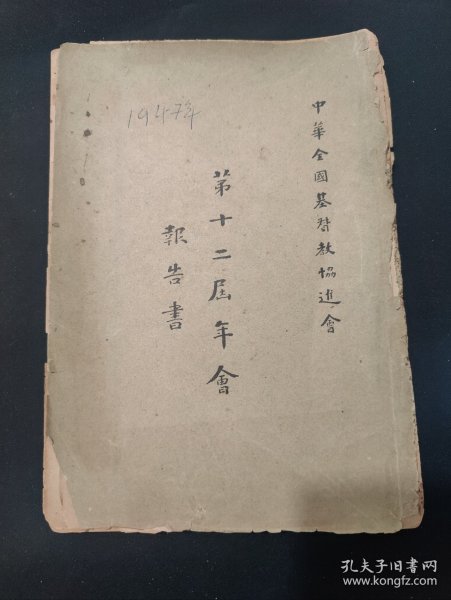 中華全國基督教協進會
第十二屆年會
報告書
1947年
孔夫子旧书网
www.kongfz.com